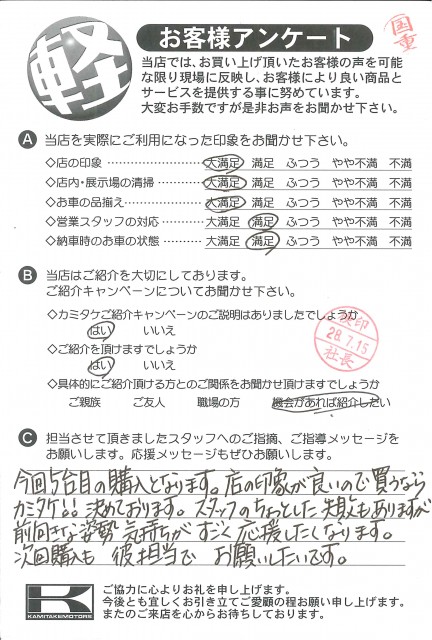 軽
お客様アンケート
国重
当店では、お買い上げ頂いたお客様の声を可能
な限り現場に反映し、お客様により良い商品と
サービスを提供する事に努めています。
大変お手数ですが是非お声をお聞かせ下さい。
A 当店を実際にご利用になった印象をお聞かせ下さい。
◇店の印象 ……………… 大満足 満足 ふつう やや不満 不満
◇店内・展示場の清掃 ……… 大満足 満足 ふつう やや不満 不満
◇お車の品揃え …………… 大満足 満足 ふつう やや不満 不満
◇営業スタッフの対応 ……… 大満足 満足 ふつう やや不満 不満
◇納車時のお車の状態 ……… 大満足 満足 ふつう やや不満 不満
B 当店はご紹介を大切にしております。
ご紹介キャンペーンについてお聞かせ下さい。
◇カミタケご紹介キャンペーンのご説明はありましたでしょうか
はい いいえ
◇ご紹介を頂けますでしょうか
はい いいえ
◇具体的にご紹介頂ける方とのご関係をお聞かせ頂けますでしょうか
ご親族 ご友人 職場の方 機会があれば紹介したい
検印
28.7.15
社長
C 担当させて頂きましたスタッフへのご指摘、ご指導メッセージを
お願いします。応援メッセージもぜひお願いします。
今回5台目の購入となります。店の印象が良いので買うなら
カミタケ!! 決めております。スタッフのちょっとした失敗もありますが
前向きな姿勢 気持ちが すごく応援したくなります。
次回購入も 彼担当で お願いしたいです。
KAMITAKEMOTORS
ご協力に心よりお礼を申し上げます。
今後とも宜しくお引き立てご愛顧の程お願い申し上げます。
またのご来店を心からお待ちしております。